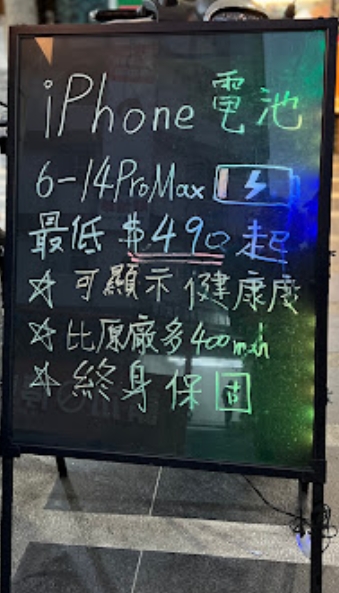 iPhone 電池
6-14ProMax
最低 $490 起
☆ 可顯示 健康度
☆ 比原廠多400mah
☆ 終身保固